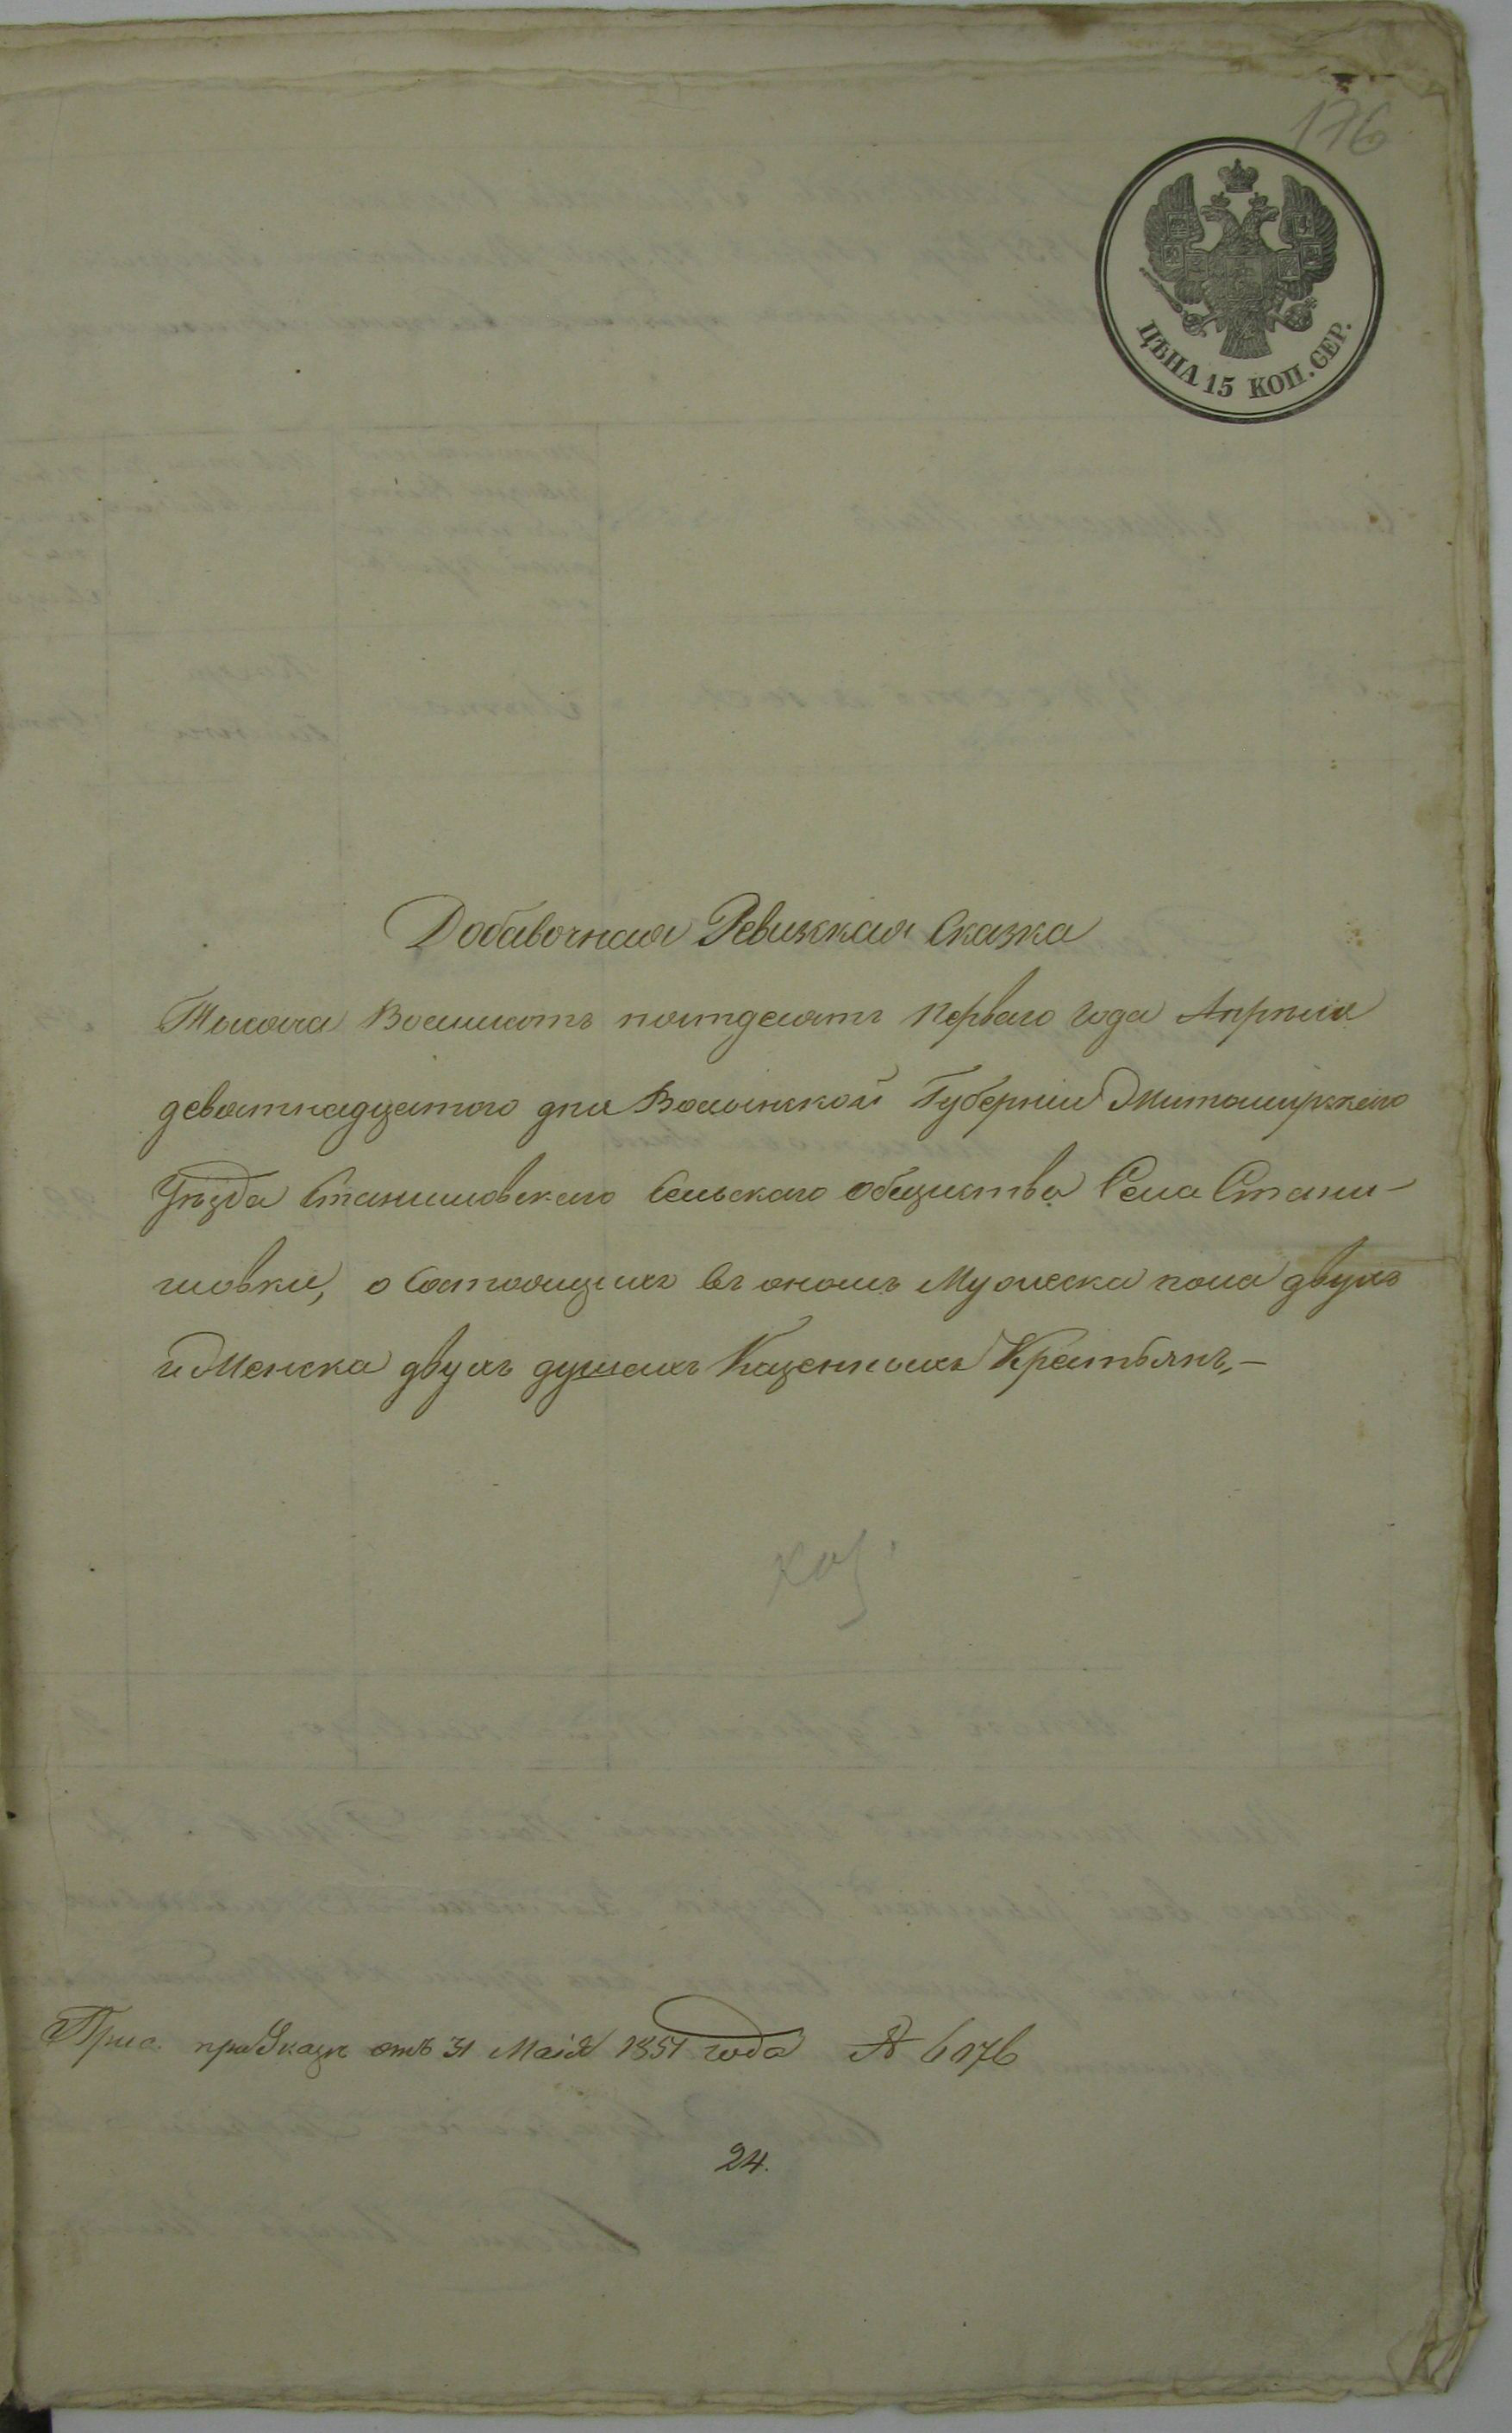 176
ЦѢНА 15 КОП. СЕР.
Добавочная Ревизская Сказка
Тысяча Восемьсотъ пятдесятъ перваго года Апрѣля
девятнадцатого дня Волынской Губерніи Житомирскаго
Уѣзда Станишовскаго Сельскаго общества Села Стани-
шовки, о Состоящихъ въ ономъ Мужеска пола двухъ
и Женска двухъ душахъ Казенныхъ Крестьянъ,—
каз.
Прис. при Указѣ отъ 31 Маія 1851 года № 6176
24.